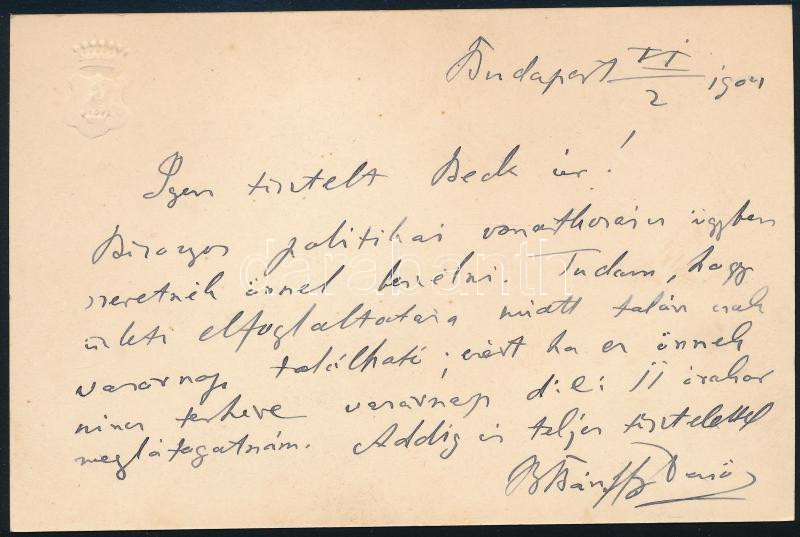 Budapest VI/2 1901
Igen tisztelt Beck úr!
Bizonyos politikai vonatkozásu ügyben
szeretnék önnel beszélni. Tudom, hogy
üzleti elfoglaltatása miatt talán csak
vasárnap található; ezért ha ez önnek
nincs terhére vasárnap d: e: 11 órakor
meglátogatnám. Addig is teljes tisztelettel
B Bánffy Dezső
darabanth